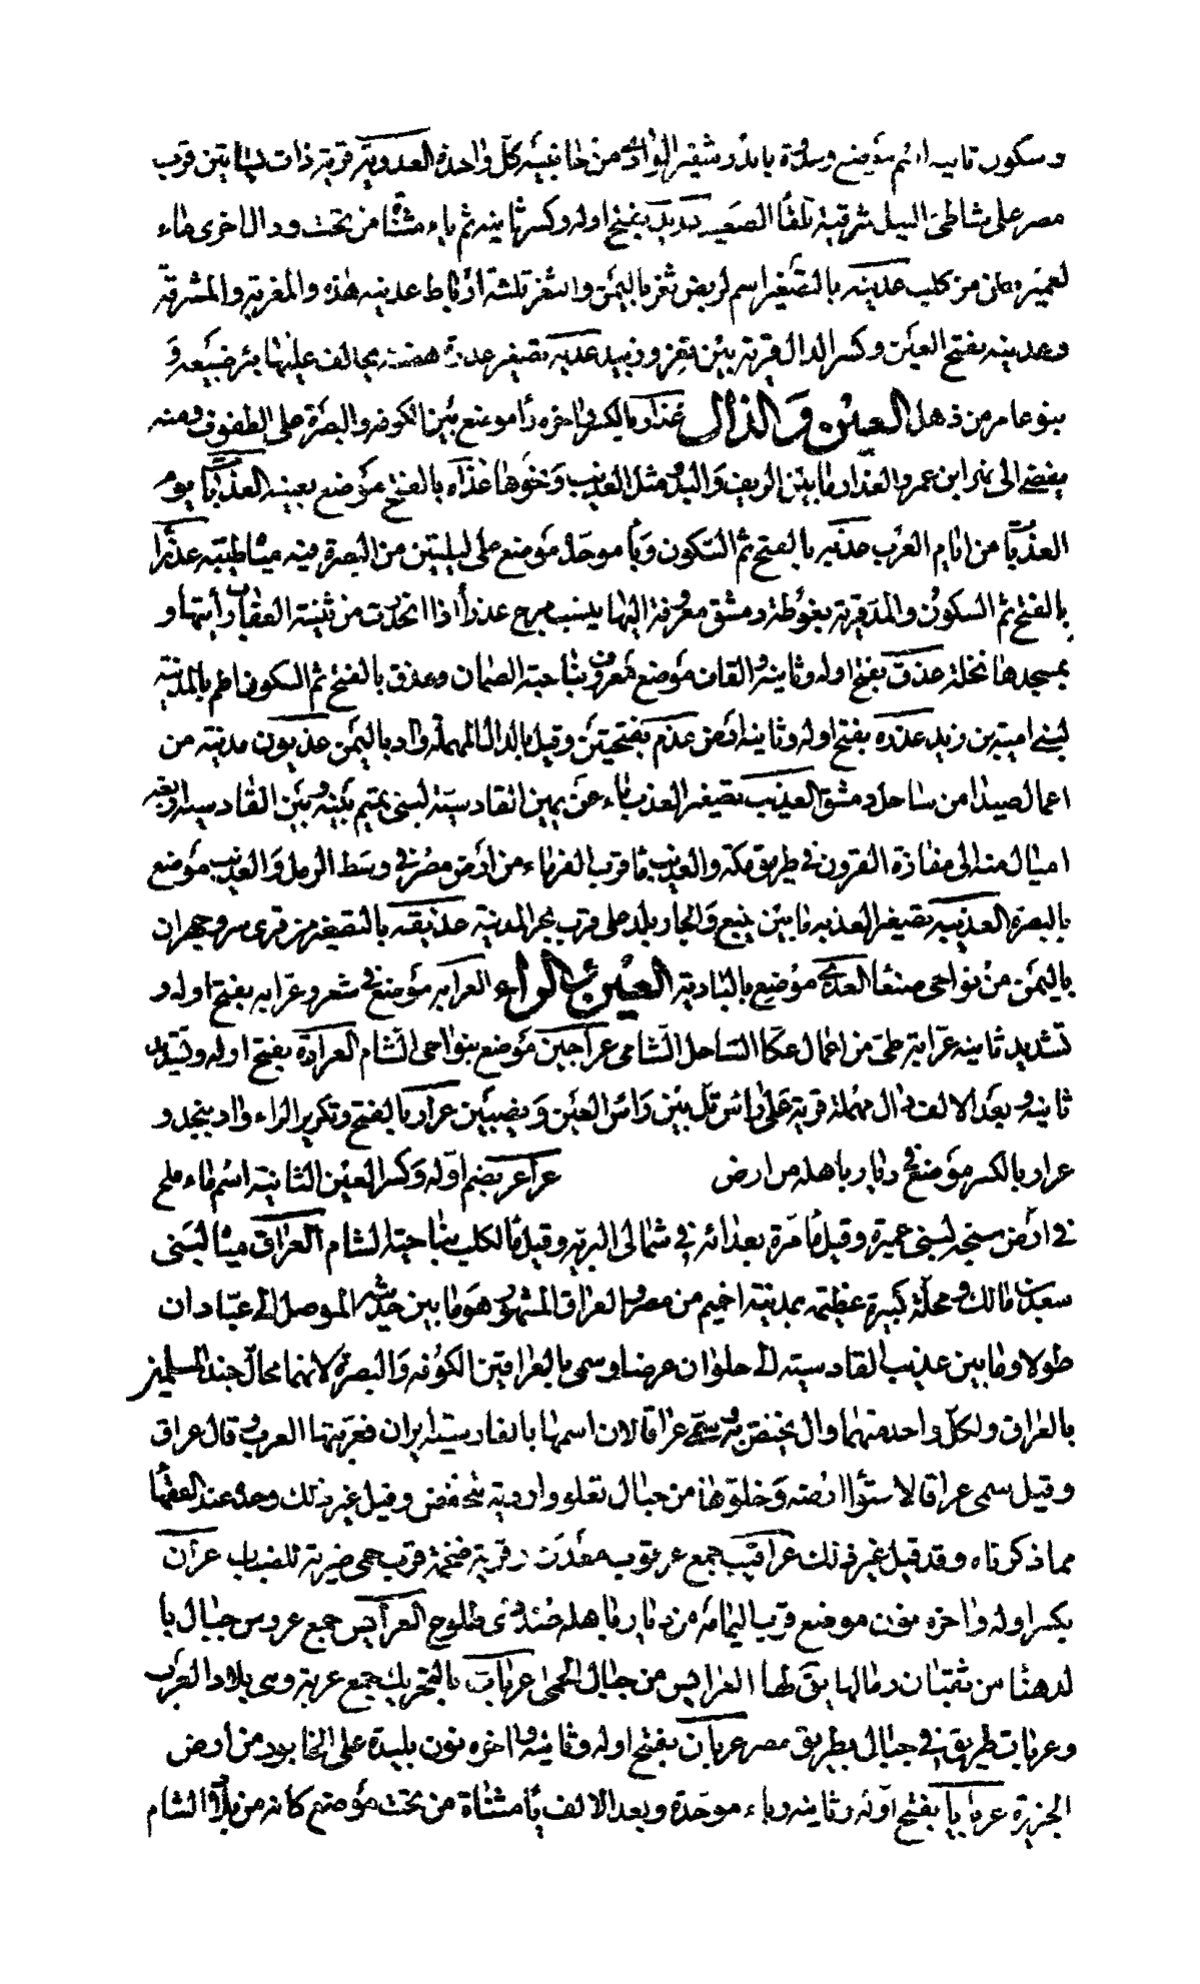 وسكون ثانيه اسم موضع وعدوة الوادى من جانبيه كل واحدة العدوية قرية ذات بساتين قرب
مصر على شاطئ النيل شرقية تلقأ الصعيد عديد بفتح اوله وكسر ثانيه ثم ياء مثناة من تحت ودال اخرى ماء
لعميرة من كلب عدينه بالتصغير اسم لربض تعز باليمن ولتعز ثلثة ارباط عدينه هذه والمغربة والمشرقة
وعدينه بفتح العين وكسر الدال قرية بين تعز وزبيد عديه تصغير عدة هضبة يحالف عليها بنو ضبيعه و
بنو عامر من ذهل العين والذال عذار بالكسر واخره را موضع بين الكوفه والبصرة على الطفوف ومنه
يفضى الى نهر ابن عمر والعذار ما بين الريف والبدو مثل العذيب ونحوها عذاه بالفتح موضع بعينه العذبات يوم
العذبات من ايام العرب عذبه بالفتح ثم السكون وبا موحدة موضع على ليلتين من البصرة فيه مياه طيبه عذرا
بالفتح ثم السكون والمد قرية بغوطة دمشق معروفة اليها ينسب مرج عذرأ اذا انحدرت من ثنية العقاب رأيتها و
بمسجدها نخلة عذق بفتح اوله وثانيه والقاف موضع معروف بناحية الصمان وعذق بالفتح ثم السكون اطم بالمدينة
لبنى امية بن زيد عذره بفتح اوله وثانيه ارض عذم بفتحتين وقيل بالدال المهملة واد باليمن عذيون مدينة من
اعمال صيدا من ساحل دمشق العذيب تصغير العذب ماء عن يمين القادسية لبنى تميم بينه وبين القادسيه اربعة
اميال منه الى مفازة القرون فى طريق مكة والعذيب ما قرب الفرماء من ارض مصر فى وسط الرمل والعذيب موضع
بالبصرة العذيبه تصغير العذبه ما بين ينبع والجار بلد على قرب بحر المدينة عذيقه بالتصغير من قرى سر وجهران
باليمن من نواحى صنعا العذى موضع بالبادية العين والراء العرابه موضع فى شعر وعرابه بفتح اوله و
تشديد ثانيه عرابة طى من اعمال عكا الساحل الشامى عراجين موضع بنواحى الشام العرادة بفتح اوله وتشديد
ثانيه وبعد الالف دال مهملة قرية على رأس تل بين رأس العين ونصيبين عرار بالفتح وتكرير الراء واد بنجد و
عرار بالكسر موضع فى ديار باهله من ارض عراعر بضم اوله وكسر العين الثانية اسم ماء ملح
فى ارض سنجد لبنى عميرة وقيل ما مرة بعدائه فى شمالى البريه وقيل ما لكلب بناحية الشام العراق مياه لبنى
سعد بن مالك ومحلة كبيرة عظيمة بمدينة اخميم من مصر والعراق المشهور هو ما بين حديثه الموصل الى عبادان
طولا وما بين عذيب القادسيه الى حلوان عرضا وسمى بالعراقين الكوفه والبصرة لانهما محال جند المسلمين
بالعراق ولكل واحد منهما وال يختص به وسمى عراقا لان اسمها بالفارسية ايران فعربتها العرب وقال عراق
وقيل سمى عراقا لاستوا ارضه وخلوها من جبال تعلو واودية تنخفض وقيل غير ذلك وحده عند الفقها
مما ذكرناه وقد قيل غير ذلك عراقيب جمع عرقوب معدن وقرية ضخمة قرب حمى ضرية للضباب عران
بكسر اوله واخره نون موضع قرب اليمامة من ديار باهله عند ذى طلوح العرايس جمع عروس جبال با
لدهنا من نقيان رمالها يقال لها العرايس من جبال الحمى عربات بالتحريك جمع عربة وهى بلاد العرب
وعربات طريق فى جبال بطريق مصر عربان بفتح اوله وثانيه واخره نون بليدة على الخابور من ارض
الجزيرة عربايا بفتح اوله وثانيه وباء موحدة وبعد الالف يأ مثناة من تحت موضع كانه من بلاد الشام